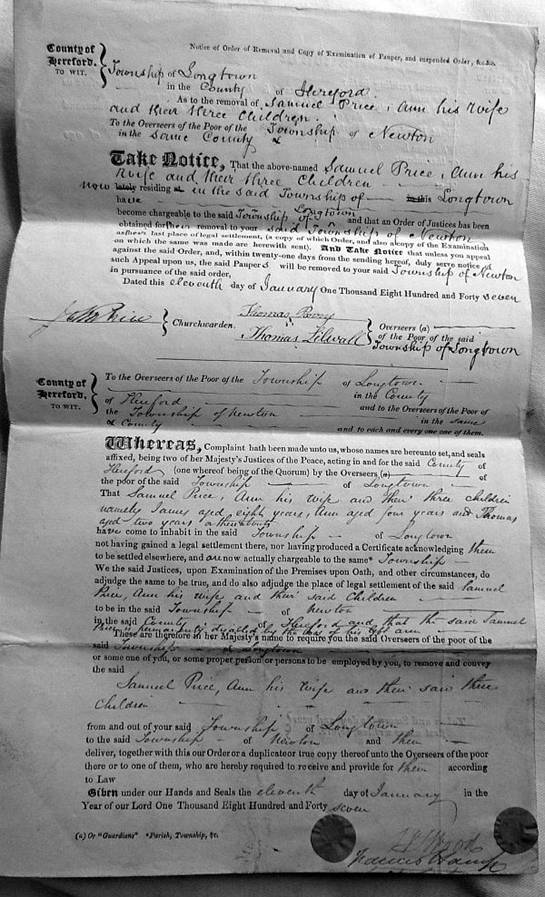 Notice of Order of Removal and Copy of Examination of Pauper, and suspended Order, &c. &c.
County of Hereford. TO WIT.
Township of Longtown
in the County of Hereford.
As to the removal of Samuel Price, Ann his wife
and their three Children.
To the Overseers of the Poor of the Township of Newton
in the same County &
Take Notice, That the above-named Samuel Price, Ann his
wife and their three Children
now lately residing at in the said Township of in this Longtown
have
become chargeable to the said Township of Longtown and that an Order of Justices has been
obtained for their removal to your said Township of Newton
as their last place of legal settlement, (a copy of which Order, and also a copy of the Examination
on which the same was made are herewith sent). And Take Notice that unless you appeal
against the said Order, and, within twenty-one days from the sending hereof, duly serve notice of
such Appeal upon us, the said Paupers will be removed to your said Township of Newton
in pursuance of the said order,
Dated this eleventh day of January One Thousand Eight Hundred and Forty seven
Price Churchwarden. Thomas
Thomas Lilwall
Overseers (a)
of the Poor of the said
Township of Longtown
County of Hereford. TO WIT.
To the Overseers of the Poor of the Township of Longtown
in the County
of Hereford and to the Overseers of the Poor of
the Township of Newton in the same
& County and to each and every one of them.
Whereas, Complaint hath been made unto us, whose names are hereunto set, and seals
affixed, being two of her Majesty's Justices of the Peace, acting in and for the said County of
Hereford (one whereof being of the Quorum) by the Overseers, (a) of
the poor of the said Township of Longtown
That Samuel Price, Ann his wife and their three children
namely James aged eight years, Ann aged four years and Thomas
aged two years or thereabouts
have come to inhabit in the said Township of Longtown
not having gained a legal settlement there, nor having produced a Certificate acknowledging them
to be settled elsewhere, and are now actually chargeable to the same* Township
We the said Justices, upon Examination of the Premises upon Oath, and other circumstances, do
adjudge the same to be true, and do also adjudge the place of legal settlement of the said Samuel
Price, Ann his wife and their said Children
to be in the said Township of Newton
in the said County of Hereford and that the said Samuel
Price is permanently disabled by the loss of his left arm
These are therefore in her Majesty's name to require you the said Overseers of the poor of the
said Township of Longtown
or some one of you, or some proper person or persons to be employed by you, to remove and convey
the said
Samuel Price, Ann his wife and their said three
Children
from and out of your said Township of Longtown
to the said Township of Newton and them
deliver, together with this our Order or a duplicate or true copy thereof unto the Overseers of the poor
there or to one of them, who are hereby required to receive and provide for them according
to Law
Given under our Hands and Seals the eleventh day of January in the
Year of our Lord One Thousand Eight Hundred and Forty seven
(a) Or "Guardians" *Parish, Township, &c.
Wood
Francis